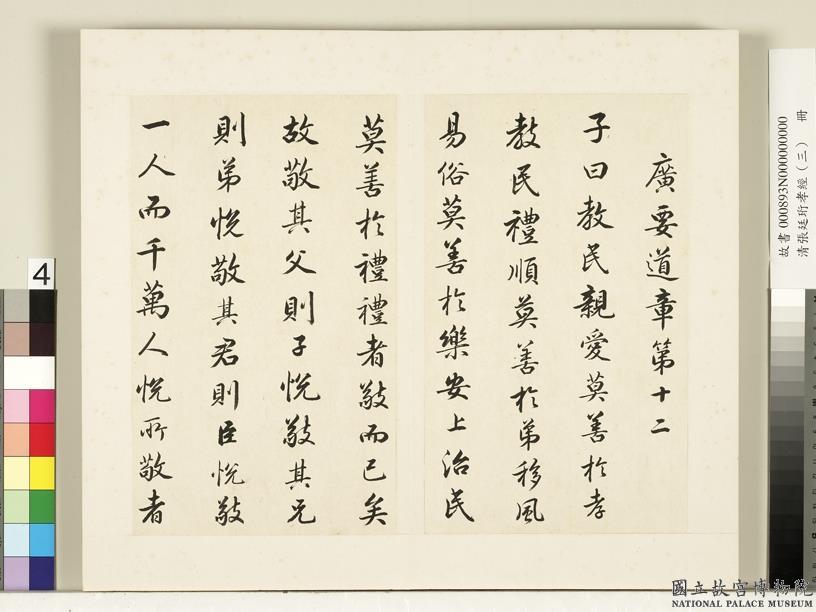 廣要道章第十二
子曰教民親愛莫善於孝
教民禮順莫善於弟移風
易俗莫善於樂安上治民
莫善於禮禮者敬而已矣
故敬其父則子悅敬其兄
則弟悅敬其君則臣悅敬
一人而千萬人悅所敬者
故書 000893N000000000
清張廷珩孝經（三） 冊
4
國立故宮博物院
NATIONAL PALACE MUSEUM